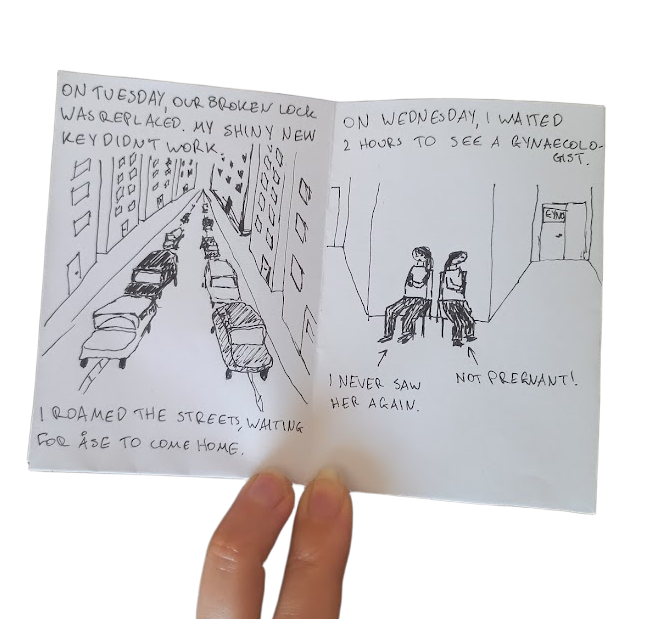 ON TUESDAY, OUR BROKEN LOCK
WAS REPLACED. MY SHINY NEW
KEY DIDN'T WORK.
I ROAMED THE STREETS, WAITING
FOR ÅSE TO COME HOME.
ON WEDNESDAY, I WAITED
2 HOURS TO SEE A GYNAECOLO-
GIST.
GYNO
I NEVER SAW
HER AGAIN.
NOT PREGNANT!